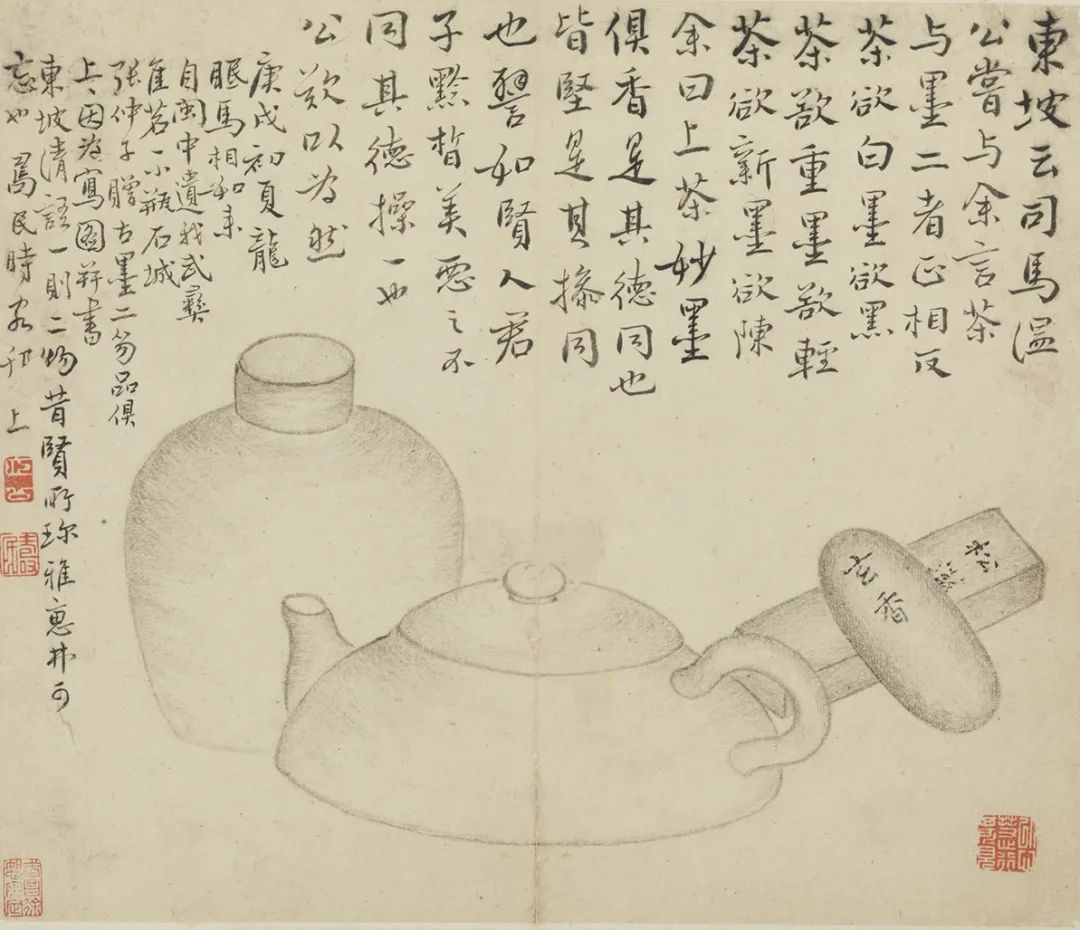 東坡云司馬溫
公嘗与余言茶
与墨二者正相反
茶欲白墨欲黑
茶欲重墨欲輕
茶欲新墨欲陳
余曰上茶妙墨
俱香是其德同也
皆堅是其操同
也譬如賢人君
子黔皙美惡之不
同其德操一也
公歎以為然
庚戌初夏龍
眠馬相如来
自閩中遺我武彝
佳茗一小瓶石城
張仲子贈古墨二笏品俱
上〻因為寫圖并書
東坡清語一則二物昔賢所珍雅惠可
忘也 民時客邗上
玄香
松